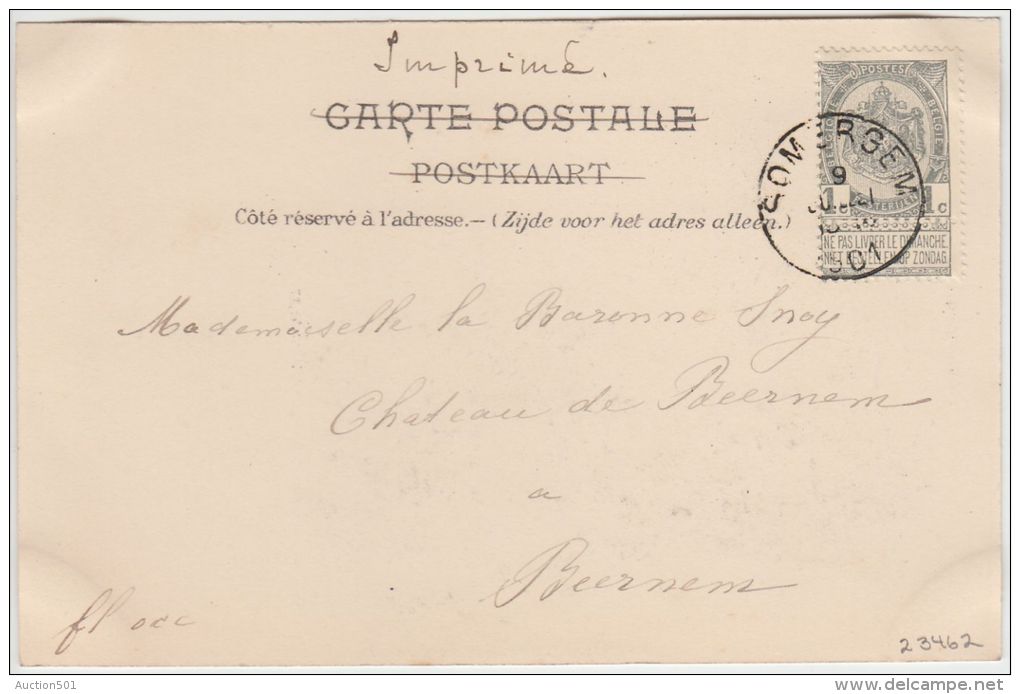 Imprimé.
CARTE POSTALE
POSTKAART
Côté réservé à l'adresse.— (Zijde voor het adres alleen.)
POSTES
BELGIQUE
BELGIE
1 1c
NE PAS LIVRER LE DIMANCHE.
NIET BESTELLEN OP ZONDAG
SOMERGEM
9
Mademoiselle la Baronne Snoy
Chateau de Beernem
a
Beernem
fl occ
23462
Auction501
delcampe.net